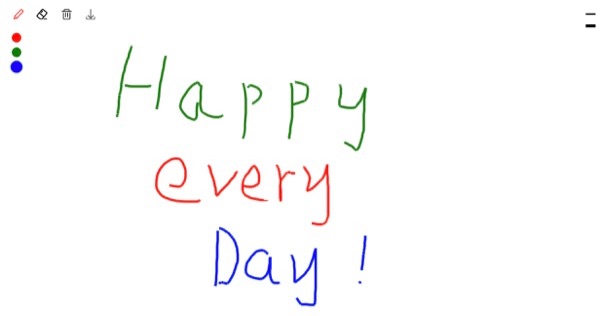 Happy
every
Day!